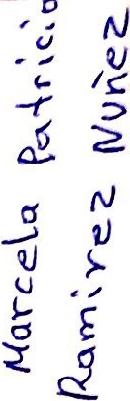 Marcela Patricia
Ramirez Nuñez